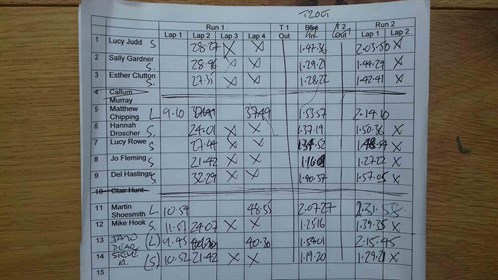 Run 1 T 1 Bike T 2 Run 2
Lap 1 Lap 2 Lap 3 Lap 4 Out Lap 1 Lap 2
1 Lucy Judd S 28:27 X X 1.47.36 2.03.50 X
2 Sally Gardner S 28.46 X X 1.29.21 1.44.29 X
3 Esther Clutton S 27.31 X X 1.28.22 1.42.41 X
4 Callum Murray
5 Matthew Chipping L 9.10 37.49 1.53.57 2.14.10
6 Hannah Droscher S 24.01 X X 1.37.19 1.50.36 X
7 Lucy Rowe S 27.44 X X X
8 Jo Fleming S 21.42 X X 1.27.22 X
9 Del Hastings S 32.29 X X 1.40.57 1.57.05 X
10 Clair Hunt
11 Martin Shoesmith L 10.59 48.55 2.07.27 2.31.58
12 Mike Hook S 11.57 24.07 X X 1.25.16 1.39.35 X
13 (L) 9.45 40.30 2.15.45
14 Steve (S) 10.52 21.42 X X 1.19.20 1.29.21 X
15